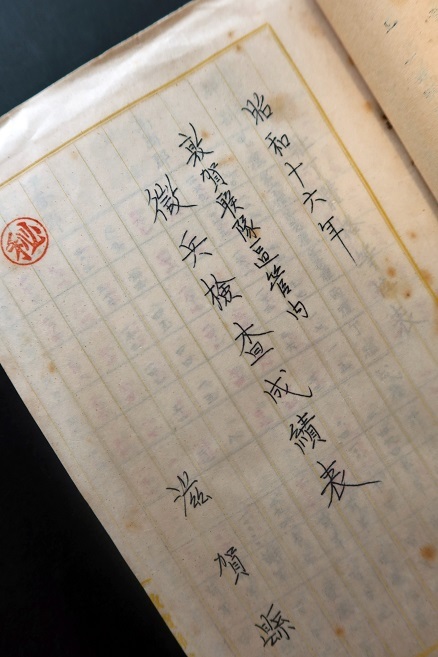 昭和十六年
敦賀聯隊區管内
徴兵檢査成績表
滋賀縣
秘